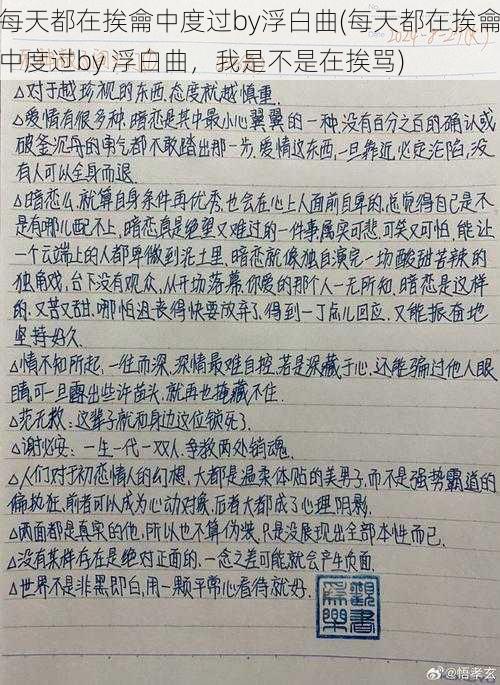 每天都在挨龠中度过by浮白曲(每天都在挨龠
中度过by 浮白曲，我是不是在挨骂)
△对于越珍视的东西,态度就越慎重.
△爱情有很多种,暗恋是其中最小心翼翼的一种,没有百分之百的确认或
破釜沉舟的勇气都不敢踏出那一步,爱情这东西,一旦靠近必定沦陷,没
有人可以全身而退.
△暗恋么,就算自身条件再优秀,也会在心上人面前自卑的,总觉得自己是不
是有哪儿配不上,暗恋真是绝望又难过的一件事,属实可悲,可笑又可怕,能让
一个云端上的人都卑微到泥土里,暗恋就像独自演完一场酸甜苦辣的
独角戏,台下没有观众,从开场落幕你爱的那个人一无所知,暗恋是这样
的,又苦又甜,哪怕沮丧得快要放弃了,得到一丁点儿回应,又能振奋地
坚持好久.
△情不知所起,一往而深,深情最难自控,若是深藏于心,还能骗过他人眼
睛,可一旦露出些许苗头,就再也掩藏不住.
△范无救:这辈子就和身边这位锁死了.
△谢必安:一生一代一双人,争教两处销魂.
△人们对于初恋情人的幻想,大都是温柔体贴的美男子,而不是强势霸道的
偏执狂,前者可以成为心动对象,后者大都成了心理阴影.
△两面都是真实的他,所以也不算伪装,只是没展现出全部本性而已.
△没有某样存在是绝对正面的,一念之差可能就会产生负面.
△世界不是非黑即白,用一颗平常心看待就好.
观书为乐
@悟孝玄